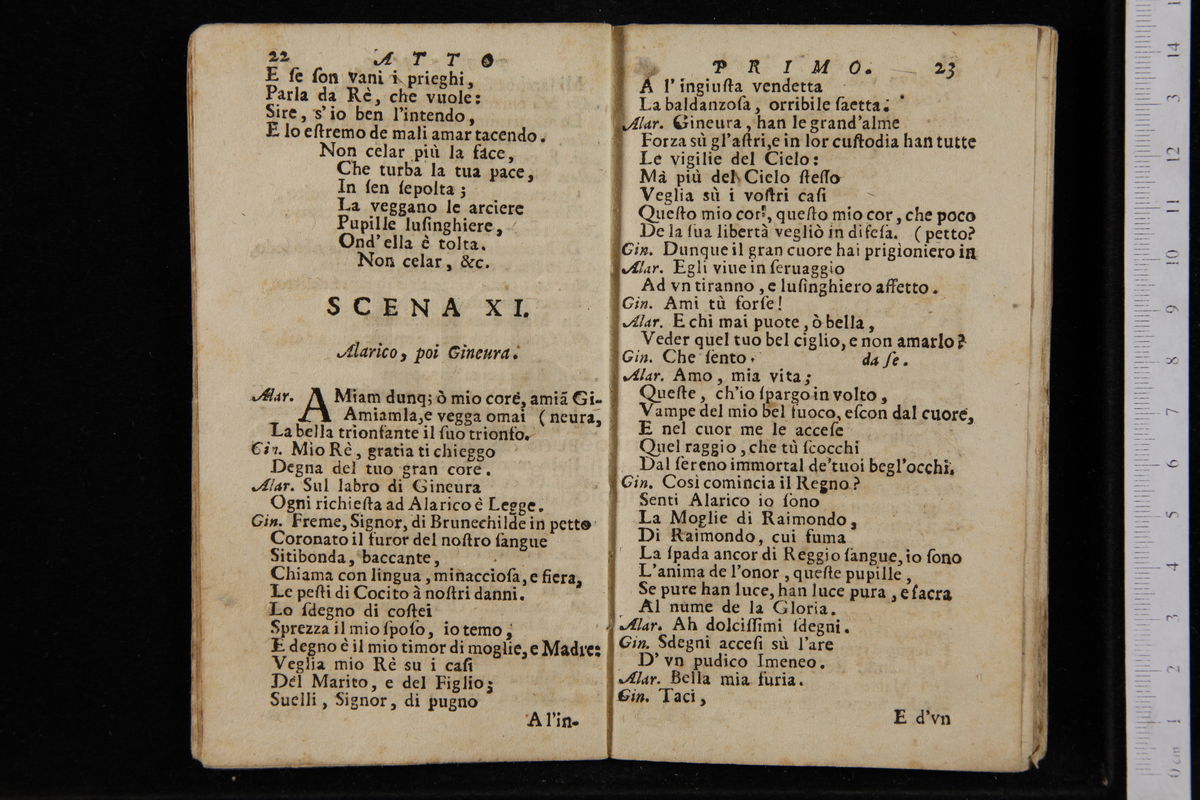 22 ATTO
E ſe ſon vani i prieghi,
Parla da Rè, che vuole:
Sire, s'io ben l'intendo,
E lo eſtremo de mali amar tacendo.
Non celar più la face,
Che turba la tua pace,
In ſen ſepolta;
La veggano le arciere
Pupille luſinghiere,
Ond'ella è tolta.
Non celar, &c.
SCENA XI.
Alarico, poi Gineura.
Alar. AMiam dunq; ò mio core, amiã Gi-
Amiamla, e vegga omai (neura,
La bella trionfante il ſuo trionfo.
Gin. Mio Rè, gratia ti chieggo
Degna del tuo gran core.
Alar. Sul labro di Gineura
Ogni richieſta ad Alarico è Legge.
Gin. Freme, Signor, di Brunechilde in petto
Coronato il furor del noſtro ſangue
Sitibonda, baccante,
Chiama con lingua, minaccioſa, e fiera,
Le peſti di Cocito à noſtri danni.
Lo ſdegno di coſtei
Sprezza il mio ſpoſo, io temo,
E degno è il mio timor di moglie, e Madre:
Veglia mio Rè su i caſi
Del Marito, e del Figlio;
Suelli, Signor, di pugno
A l'in-
PRIMO. 23
A l'ingiuſta vendetta
La baldanzoſa, orribile ſaetta.
Alar. Gineura, han le grand'alme
Forza sù gl'aſtri, e in lor cuſtodia han tutte
Le vigilie del Cielo:
Mà più del Cielo ſteſſo
Veglia sù i voſtri caſi
Queſto mio cor, queſto mio cor, che poco
De la ſua libertà vegliò in difeſa. (petto?
Gin. Dunque il gran cuore hai prigioniero in
Alar. Egli viue in ſeruaggio
Ad vn tiranno, e luſinghiero affetto.
Gin. Ami tù forſe!
Alar. E chi mai puote, ò bella,
Veder quel tuo bel ciglio, e non amarlo?
Gin. Che ſento. da ſe.
Alar. Amo, mia vita;
Queſte, ch'io ſpargo in volto,
Vampe del mio bel fuoco, eſcon dal cuore,
E nel cuor me le acceſe
Quel raggio, che tù ſcocchi
Dal ſereno immortal de'tuoi begl'occhi.
Gin. Così comincia il Regno?
Senti Alarico io ſono
La Moglie di Raimondo,
Di Raimondo, cui fuma
La ſpada ancor di Reggio ſangue, io ſono
L'anima de l'onor, queſte pupille,
Se pure han luce, han luce pura, e ſacra
Al nume de la Gloria.
Alar. Ah dolciſſimi ſdegni.
Gin. Sdegni acceſi sù l'are
D'vn pudico Imeneo.
Alar. Bella mia furia.
Gin. Taci,
E d'vn